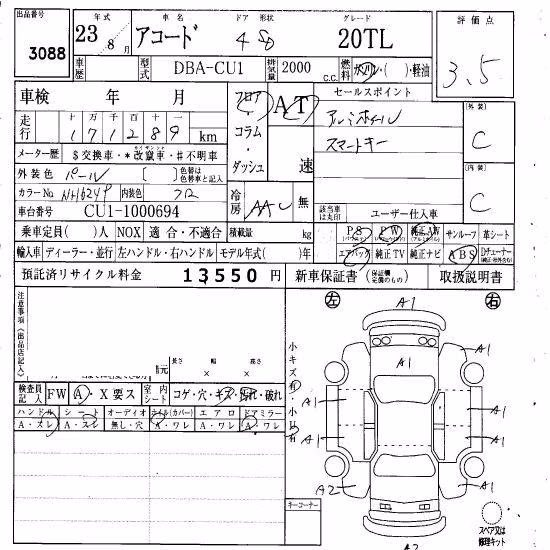 出品番号 3088
年式 23年8月 車名 アコード ドア 形状 4 SD グレード 20TL 評価点 3.5
車歴 型式 DBA-CU1 排気量 2000 c.c. 燃料 ガソリン・( )・軽油
車検 年 月 フロア・コラム・ダッシュ AT 速 セールスポイント
走行 十万 万 千 百 十 一 171289 km アルミホイール 外装 C
スマートキー
メーター歴 $交換車・*改竄車・#不明車 内装 C
外装色 パール [ ] 色替車は元色
カラーNo. NH624P 内装色 クロ 冷房 AAC 無
車台番号 CU1-1000694 該当車は丸印 ユーザー仕入車
乗車定員( )人 NOX 適合・不適合 積載量 kg PS PW 純正AW サンルーフ 革シート
輸入車 ディーラー・並行 左ハンドル・右ハンドル モデル年式( )年 エアバック 純正TV 純正ナビ ABS
預託済リサイクル料金 13550円 新車保証書 取扱説明書
注意事項(出品店記入)
左 A1 右
小キズ有・小凹有
A1
A1
A1
A1
A1
A1
A1
A1
長さ × 幅 × 高さ
検査員記入 FW A・X要ス 室内シート コゲ・穴・キズ・汚れ・破れ
ハンドル シート オーディオ (カバー) エアロ ドアミラー
A・スレ A・スレ 無し・穴 A・ワレ A・ワレ A・ワレ
A2
キーコーナー
スペア又は修理キット
A2